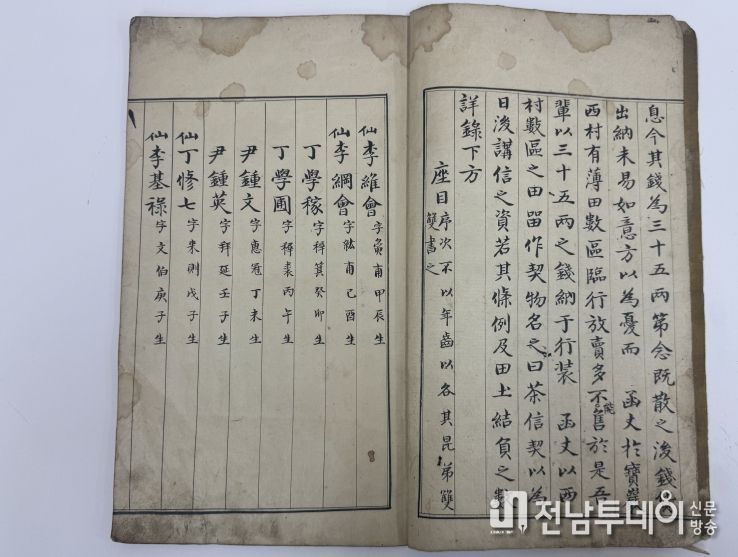 息今其錢為三十五兩第念既散之後錢
出納未易如意方以為憂而 函丈於寶
西村有薄田數區臨行放賣多不能售於是吾
輩以三十五兩之錢納于行裝 函丈以西
村數區之田留作契物名之曰茶信契以為
日後講信之資若其條例及田土結負之數
詳錄下方
座目 序次不以年齒以各其昆弟雙
雙書之
仙 李維會 字 甫甲辰生
仙 李綱會 字紘甫己酉生
丁學稼 字穉箕癸卯生
丁學圃 字穉裘丙午生
尹鍾文 字惠冠丁未生
尹鍾英 字拜延壬子生
仙 丁修七 字來則戊子生
仙 李基祿 字文伯庚子生
전남투데이 신문
방송